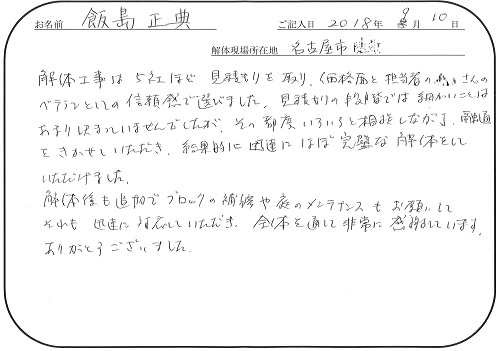 お名前 飯島 正典 ご記入日 2018年 9月 10日
解体現場所在地 名古屋市
解体工事は5社ほど見積もりを取り、価格面と担当者の さんの
ベテランとしての信頼感で選びました。見積もりの段階では細かいことは
あまり決まっていませんでしたが、その都度いろいろと相談しながら、融通
をきかせていただき、結果的に迅速にほぼ完璧な解体をして
いただけました。
解体後も追加でブロックの補修や庭のメンテナンスもお願いして
それも迅速に対応していただき、全体を通して非常に感謝しています。
ありがとうございました。